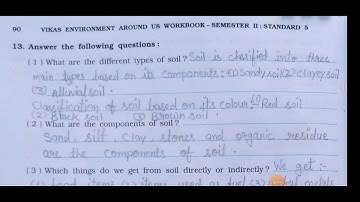 90 VIKAS ENVIRONMENT AROUND US WORKBOOK – SEMESTER II : STANDARD 5
13. Answer the following questions :
(1) What are the different types of soil? Soil is classified into three
main types based on its components: (1) Sandy soil (2) Clayey soil
(3) Alluvial soil.
Classification of soil based on its colour:- (1) Red soil
(2) Black soil (3) Brown soil.
(2) What are the components of soil?
Sand, silt, clay, stones and organic residue
are the components of soil.
(3) Which things do we get from soil directly or indirectly? We get :-
(1) food items (2) items used as fuel (3) metals